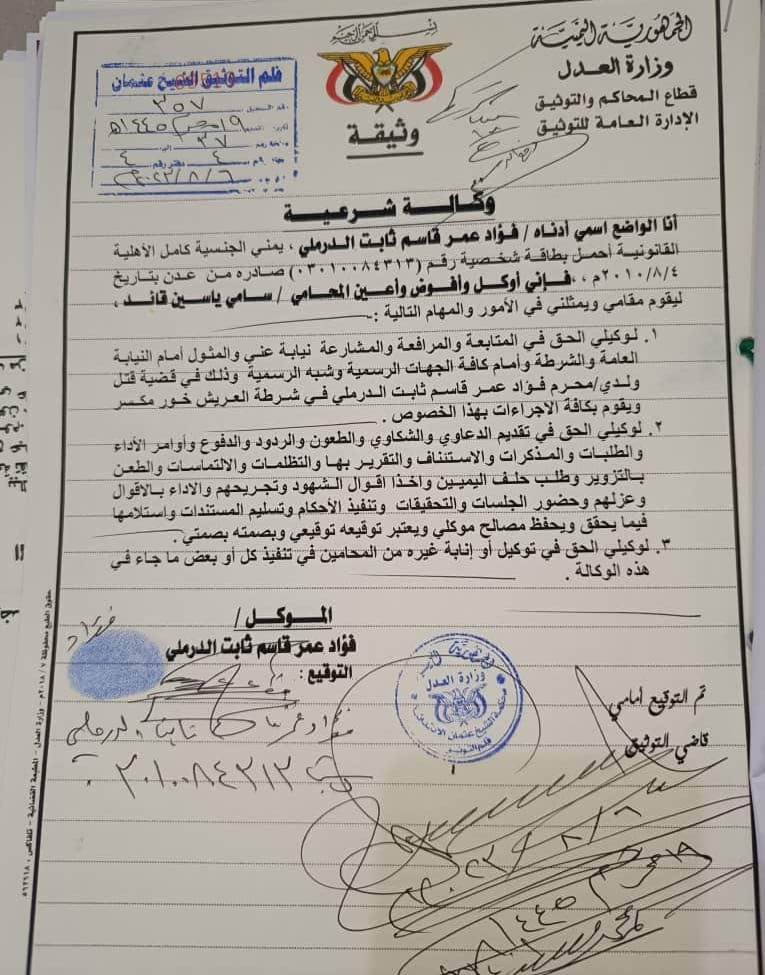 بسم الله الرحمن الرحيم
الجمهورية اليمنية
وزارة العدل
قطاع المحاكم والتوثيق
الإدارة العامة للتوثيق
وثيقة
قلم التوثيق الشيخ عثمان
٣٥٧
١٩ محرم ١٤٤٥هـ
٣٧
٤ دفتر رقم ٤
٢٠٢٣/٨/٦م
وكالة شرعية
أنا الواضع اسمي أدناه / فؤاد عمر قاسم ثابت الدرملي ، يمني الجنسية كامل الأهلية
القانونية أحمل بطاقة شخصية رقم (٠٣٠١٠٠٨٤٣١٣) صادره من عدن بتاريخ
٢٠١٠/٨/٤م ، فإني أوكل وأفوض وأعين المحامي / سامي ياسين قائد ،
ليقوم مقامي ويمثلني في الأمور والمهام التالية :-
١. لوكيلي الحق في المتابعة والمرافعة والمشارعة نيابة عني والمثول أمام النيابة
العامة والشرطة وأمام كافة الجهات الرسمية وشبه الرسمية وذلك في قضية قتل
ولدي/محرم فؤاد عمر قاسم ثابت الدرملي في شرطة العريش خور مكسر
ويقوم بكافة الاجراءات بهذا الخصوص .
٢. لوكيلي الحق في تقديم الدعاوي والشكاوي والطعون والردود والدفوع وأوامر الأداء
والطلبات والمذكرات والاستئناف والتقرير بها والتظلمات والالتماسات والطعن
بالتزوير وطلب حلف اليمين واخذا اقوال الشهود وتجريحهم والاداء بالاقوال
وعزلهم وحضور الجلسات والتحقيقات وتنفيذ الأحكام وتسليم المستندات واستلامها
فيما يحقق ويحفظ مصالح موكلي ويعتبر توقيعه توقيعي وبصمته بصمتي .
٣. لوكيلي الحق في توكيل أو إنابة غيره من المحامين في تنفيذ كل أو بعض ما جاء في
هذه الوكالة .
الموكل /
فؤاد
فؤاد عمر قاسم ثابت الدرملي
التوقيع :
فؤاد عمر قاسم ثابت الدرملي
٠٣٠١٠٠٨٤٣١٣
وزارة العدل
قلم التوثيق
تم التوقيع أمامي
قاضي التوثيق
٢٠٢٣/٨/٦
١٩ محرم
١٤٤٥